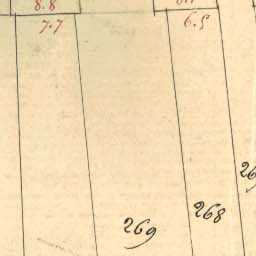 8.8
7.7
6.5
269
268